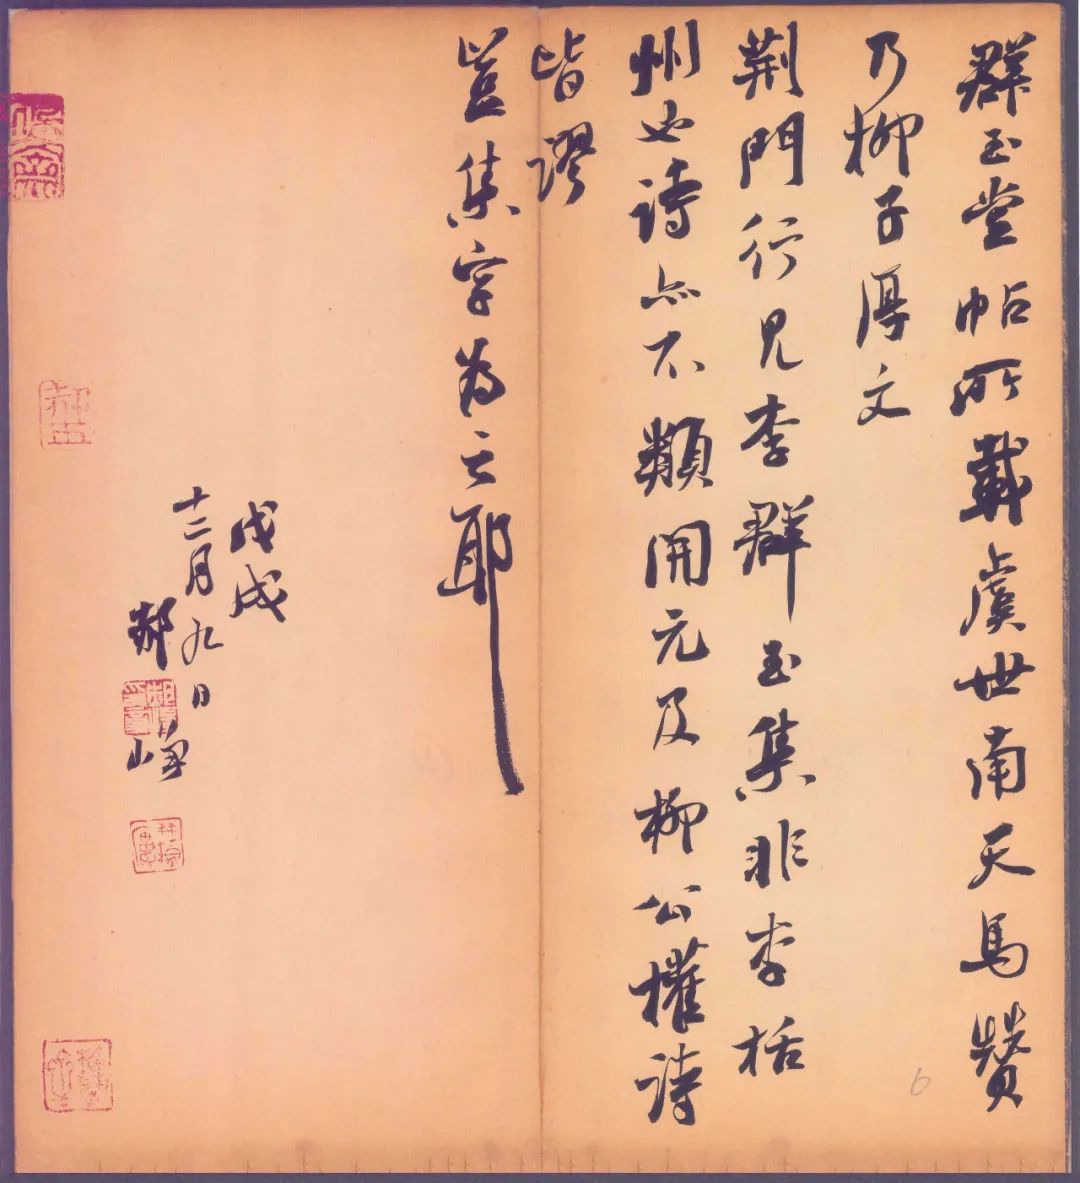 群玉堂帖所載虞世南天馬贊
乃柳子厚文
荆門行見李群玉集非李括
州也詩亦不類開元及柳公權詩
皆謬
豈集字為之耶
戊戌
十二月九日
郝
峰
6